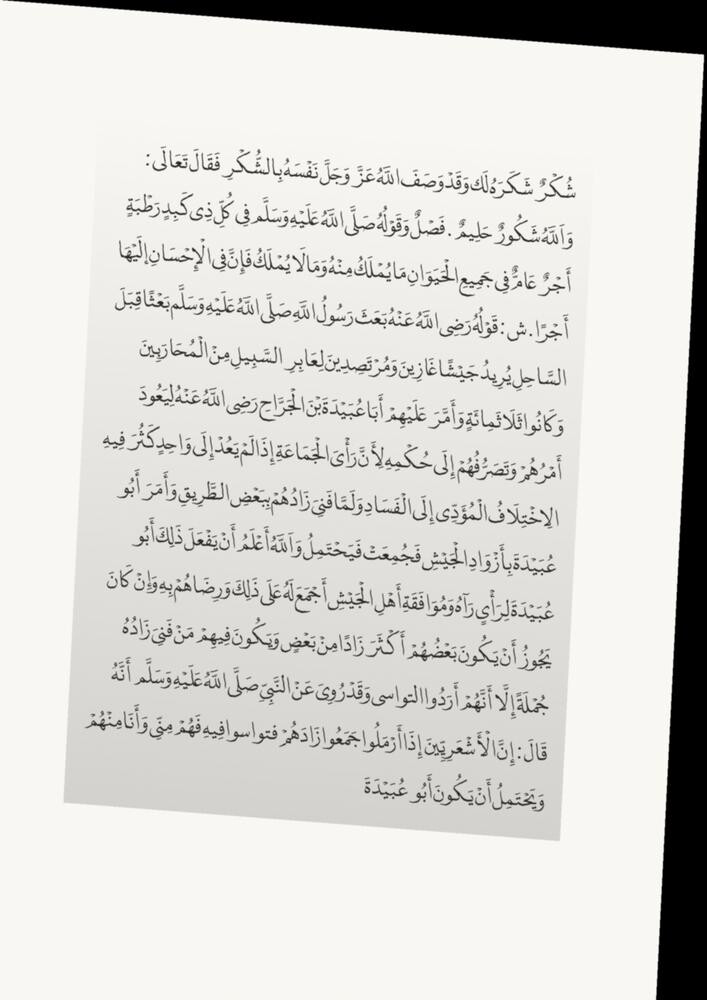 شُكْرٌ شَكَرَهُ لَكَ وَقَدْ وَصَفَ اللَّهُ عَزَّ وَجَلَّ نَفْسَهُ بِالشُّكْرِ فَقَالَ تَعَالَى:
وَاَللَّهُ شَكُورٌ حَلِيمٌ. فَصْلٌ وَقَوْلُهُ صَلَّى اللَّهُ عَلَيْهِ وَسَلَّم فِي كُلِّ ذِي كَبِدٍ رَطْبَةٍ
أَجْرٌ عَامٌّ فِي جَمِيعِ الْحَيَوَانِ مَا يُمْلَكُ مِنْهُ وَمَا لَا يُمْلَكُ فَإِنَّ فِي الْإِحْسَانِ إلَيْهَا
أَجْرًا. ش: قَوْلُهُ رَضِيَ اللَّهُ عَنْهُ بَعَثَ رَسُولُ اللَّهِ صَلَّى اللَّهُ عَلَيْهِ وَسَلَّم بَعْثًا قِبَلَ
السَّاحِلِ يُرِيدُ جَيْشًا غَازِينَ وَمُرْتَصِدِينَ لِعَابِرِ السَّبِيلِ مِنْ الْمُحَارَبِينَ
وَكَانُوا ثَلَاثَمِائَةٍ وَأَمَّرَ عَلَيْهِمْ أَبَا عُبَيْدَةَ بْنَ الْجَرَّاحِ رَضِيَ اللَّهُ عَنْهُ لِيَعُودَ
أَمْرُهُمْ وَتَصَرُّفُهُمْ إِلَى حُكْمِهِ لِأَنَّ رَأْيَ الْجَمَاعَةِ إذَا لَمْ يَعُدْ إِلَى وَاحِدٍ كَثُرَ فِيهِ
الِاخْتِلَافُ الْمُؤَدِّي إِلَى الْفَسَادِ وَلَمَّا فَنِيَ زَادُهُمْ بِبَعْضِ الطَّرِيقِ وَأَمَرَ أَبُو
عُبَيْدَةَ بِأَزْوَادِ الْجَيْشِ فَجُمِعَتْ فَيَحْتَمِلُ وَاَللَّهُ أَعْلَمُ أَنْ يَفْعَلَ ذَلِكَ أَبُو
عُبَيْدَةَ لِرَأْيٍ رَآهُ وَمُوَافَقَةِ أَهْلِ الْجَيْشِ أَجْمَعَ لَهُ عَلَى ذَلِكَ وَرِضَاهُمْ بِهِ وَإِنْ كَانَ
يَجُوزُ أَنْ يَكُونَ بَعْضُهُمْ أَكْثَرَ زَادًا مِنْ بَعْضٍ وَيَكُونَ فِيهِمْ مَنْ فَنِيَ زَادُهُ
جُمْلَةً إِلَّا أَنَّهُمْ أَرَدُوا التواسى وَقَدْ رُوِيَ عَنْ النَّبِيِّ صَلَّى اللَّهُ عَلَيْهِ وَسَلَّم أَنَّهُ
قَالَ: إِنَّ الْأَشْعَرِيِّينَ إِذَا أَرْمَلُوا جَمَعُوا زَادَهُمْ فتواسوا فِيهِ فَهُمْ مِنِّي وَأَنَا مِنْهُمْ
وَيَحْتَمِلُ أَنْ يَكُونَ أَبُو عُبَيْدَةَ